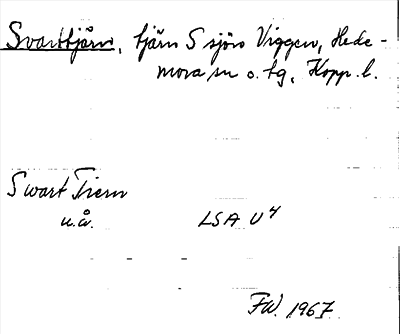 Svarttjärn, tjärn S sjön Viggen, Hede-
mora sn o. tg, Kopp. l.
Swart Tiern
u.å. LSA U4
FW. 1967